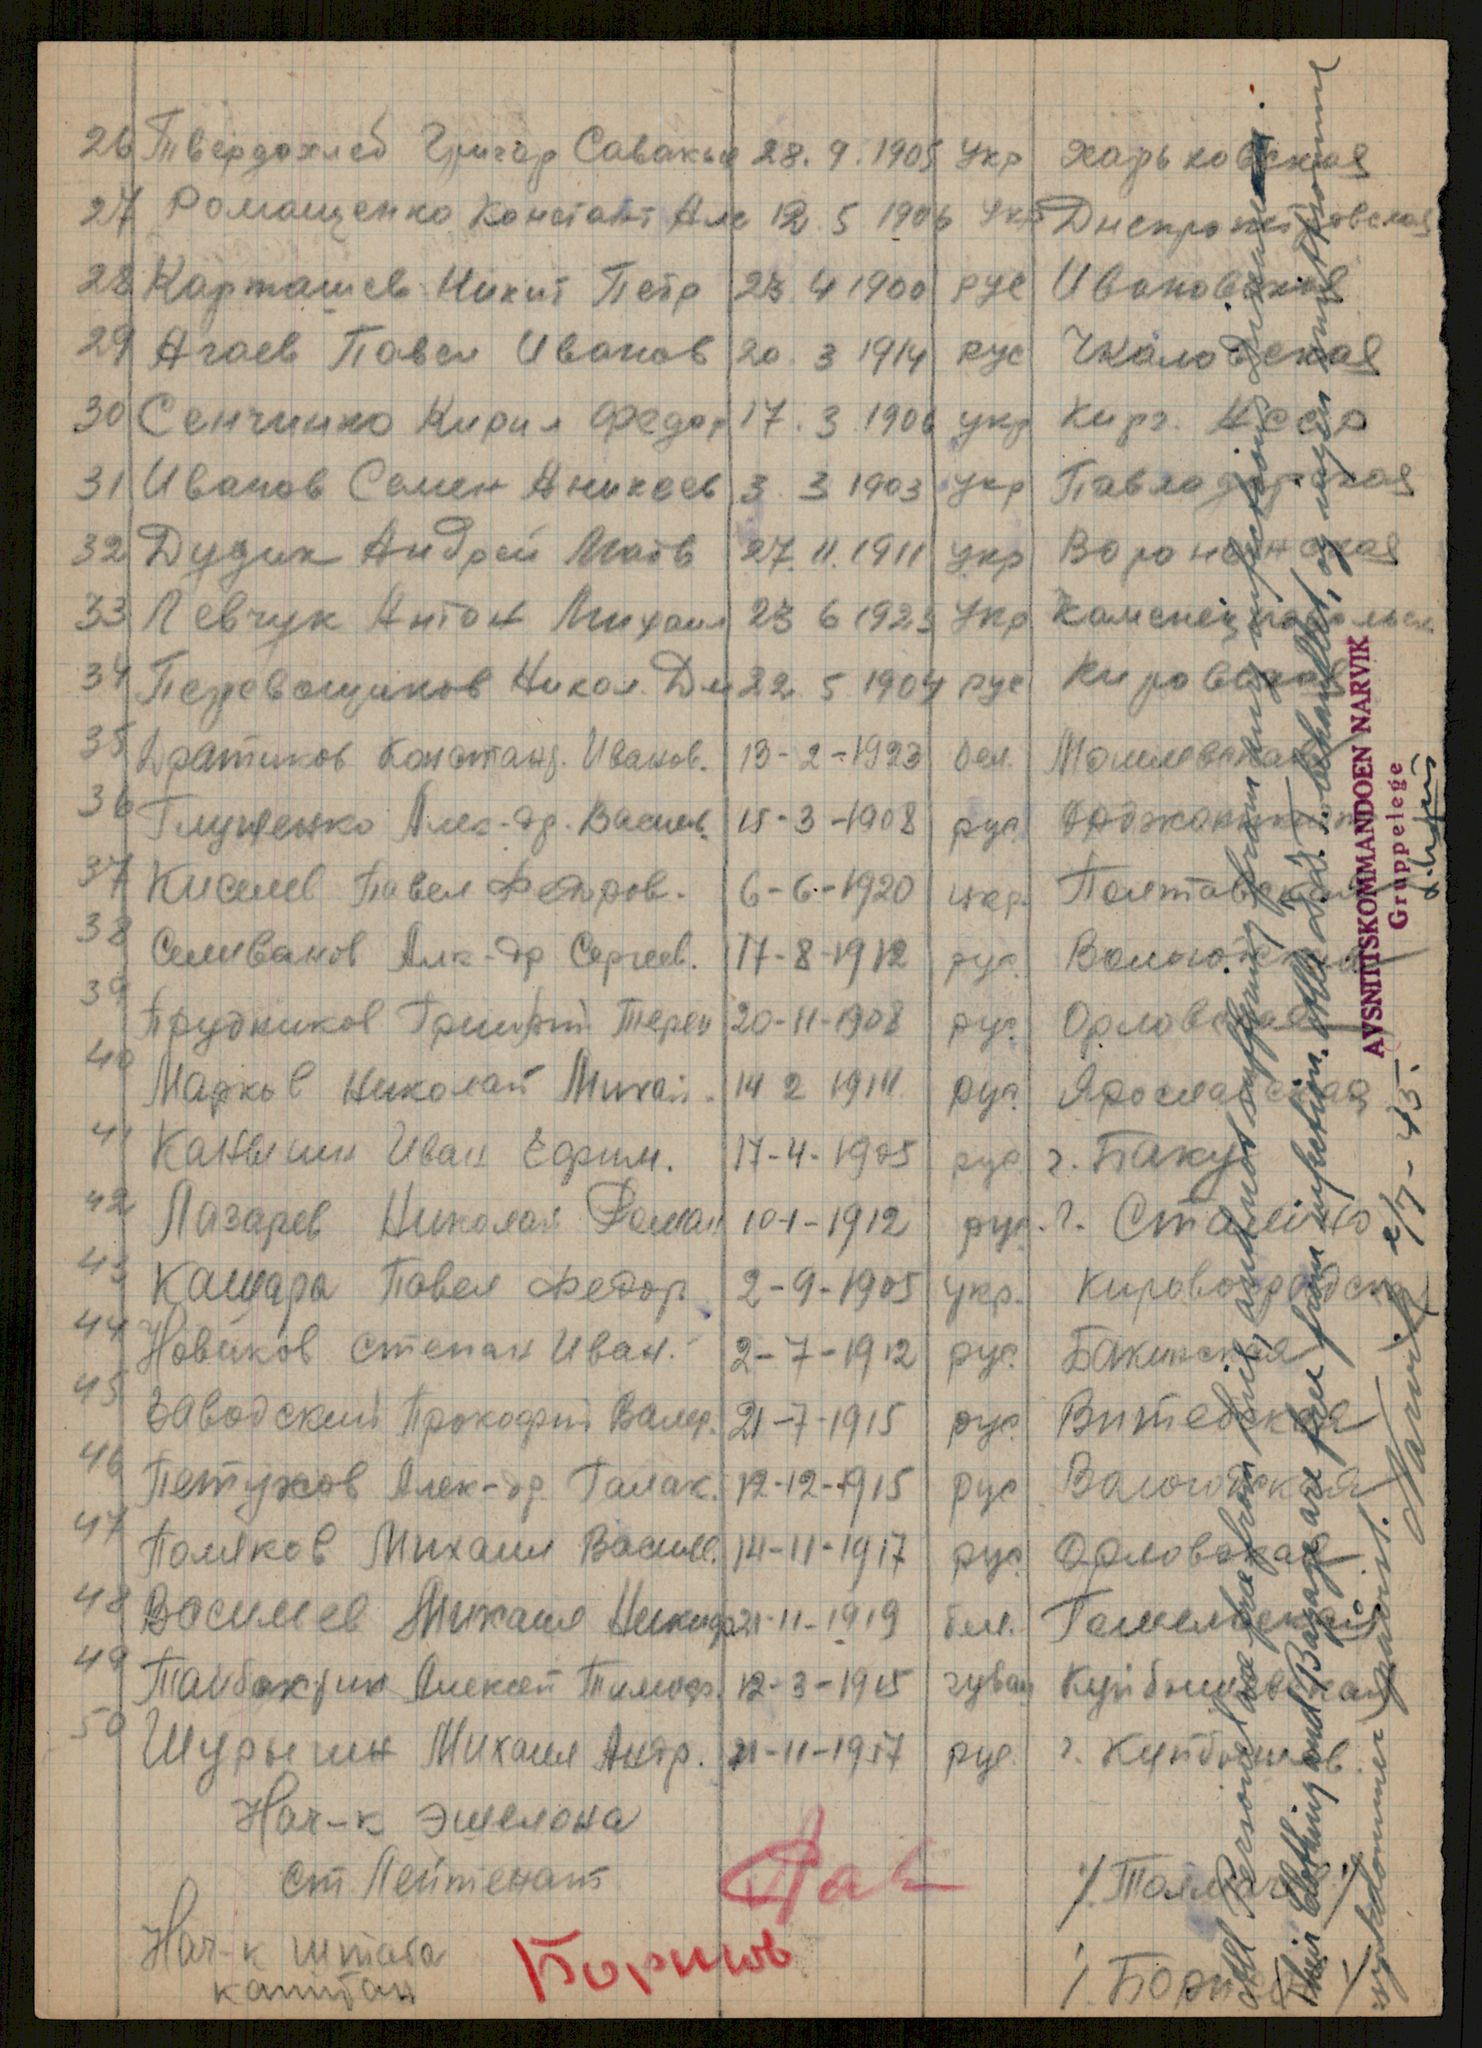 26 Твердохлеб Григор Савакье 28.9.1905 укр Харьковская
27 Ромащенко Констант Але 12 5 1906 укр Днепропетровская
28 Карташев Никит Петр 23 4 1900 рус Ивановская
29 Агаев Павел Иванов 20.3 1914 рус Чкаловская
30 Сенчинко Кирил Федор 17.3.1906 укр Кирг. АССР
31 Иванов Семен Аникеев 3 3 1903 укр Павлодарская
32 Дудик Андрей Матв 27.11.1911 укр Воронежская
33 Левчук Антон Михаил 23 6 1923 укр Каменец подольск
34 Перевощиков Никол. Дм 22.5 1904 рус Кировская
35 Братиков Констант. Иванов. 13-2-1923 бел. Могилевская
36 Глущенко Алек-др. Васил. 15-3-1908 рус. Орджоникид
37 Киселев Павел Федоров. 6-6-1920 укр. Полтавская
38 Селиванов Алк-др Сергеев. 17-8-1912 рус. Вологодская
39 Прудников Григорий Терен 20-11-1908 рус. Орловская
40 Марков Николай Михай. 14 2 1914 рус. Ярославская
41 Каныгин Иван Ефим. 17-4-1905 рус г. Баку
42 Лазарев Николай Роман 10-1-1912 рус. г. Сталино
43 Кашара Павел Федор 2-9-1905 укр. Кировоградска
44 Новиков Степан Иван. 2-7-1912 рус. Бакинская
45 Заводский Прокофий Валер. 21-7-1915 рус. Витебская
46 Петухов Алек-др. Галак. 12-12-1915 рус Вологодская
47 Поляков Михаил Васил. 14-11-1917 рус Орловская
48 Васильев Михаил Никифо 21-11-1919 бел. Гомельская
49 Тайбахтин Алексей Тимоф. 12-3-1915 чуваш Куйбышевская
50 Шурыгин Михаил Андр. 21-11-1917 рус. г. Куйбышев.
Нач-к эшелона
ст Лейтенант
/. Толмачев /
Нач-к штаба
капитан
Борисов
/. Борисов /
All Personel are free from lice, and not suffering from any infectious diseases.
Their Clothing and Barage are free from infection. Alle d.d.t. behandlet, og ingen smittsomme
sykdommer passist.
Narvik 2/7-45.
AVSNITTSKOMMANDOEN NARVIK
Gruppelege